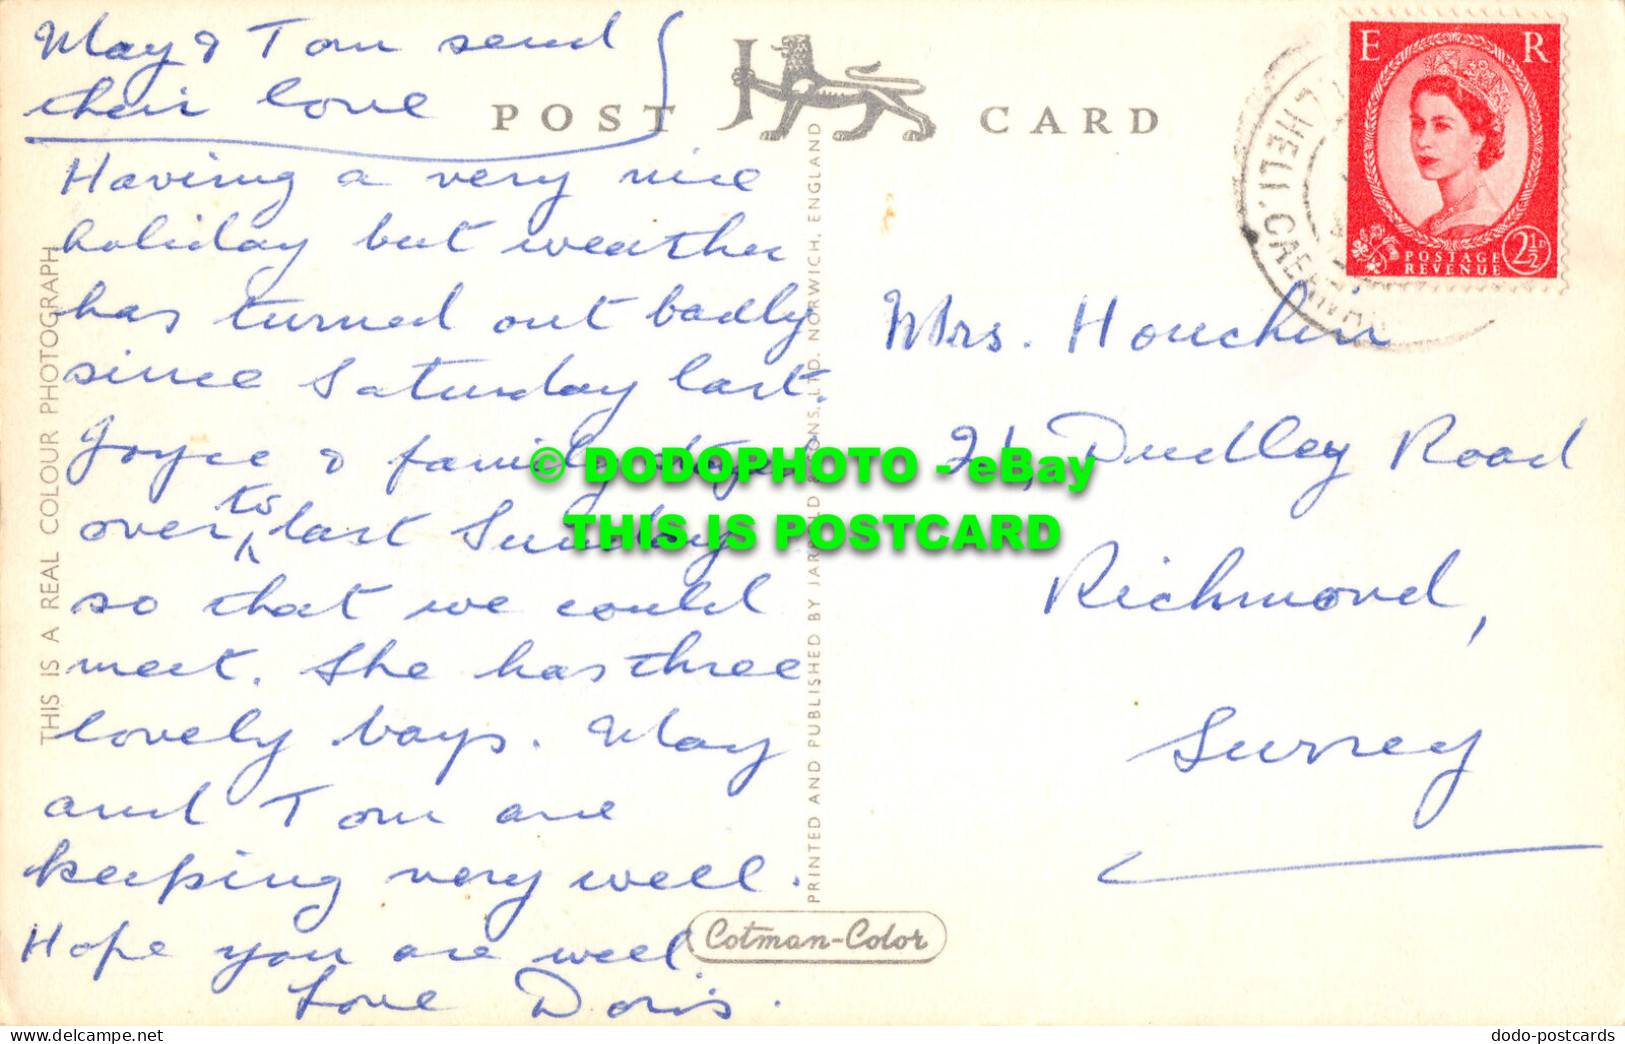 May & Tom send
their love
POST CARD
Having a very nice
holiday but weather
has turned out badly
since Saturday last.
Joyce & family
over to last Sunday
so that we could
meet. She has three
lovely boys. May
and Tom are
keeping very well.
Hope you are well.
Love Doris.
THIS IS A REAL COLOUR PHOTOGRAPH
PRINTED AND PUBLISHED BY JARROLD & SONS, LTD. NORWICH. ENGLAND
Cotman-Color
E R
POSTAGE
REVENUE
2½D
LHELI. CAERNAR
Mrs. Houchin
Dudley Road
Richmond,
Surrey
© DODOPHOTO - eBay
THIS IS POSTCARD
dodo-postcards